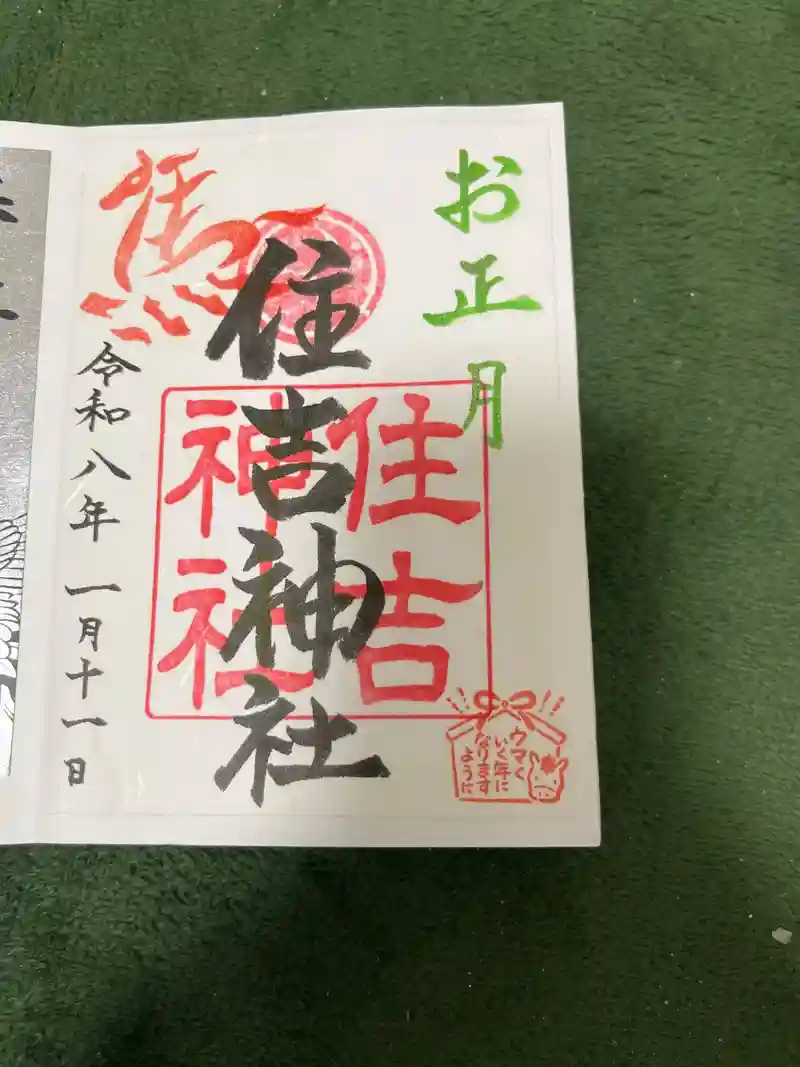 お正月
住吉神社
住吉
神社
馬
令和八年一月十一日
ウマく
いく年に
なります
ように